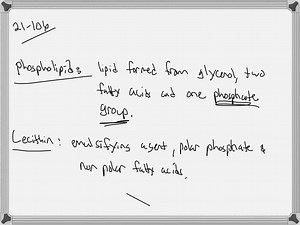 21-10b
phospholipids lipid formed from glycerol, two
fatty acids and one phosphate
group.
Lecithin: emulsifying agent, polar phosphate &
non polar fatty acids.